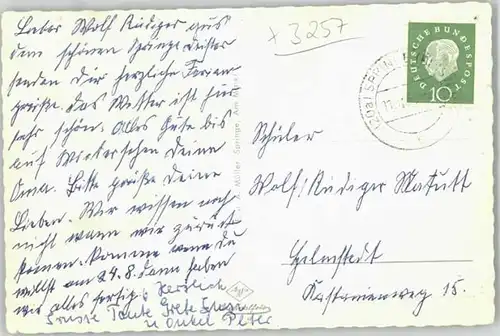 + 3257
Lieber Wolf Rüdiger aus
dem schönen Springe Deister
senden Dir herzliche Ferien
grüße. Das Wetter ist hier
sehr schön. Alles Gute bis
auf Wiedersehen Deine
Oma. Bitte grüße Deine
Lieben. Wir wissen noch
nicht wann wir zurück
kommen. Komme wenn Du
willst am 24.8. dann haben
wir alles fertig. Herzlich
Grüsse Tante Grete
u Onkel Peter
Müller, Springe, Am
DEUTSCHE BUNDESPOST
10
Schüler
Wolf Rüdiger Matutt
Helmstedt
Kastanienweg 15.